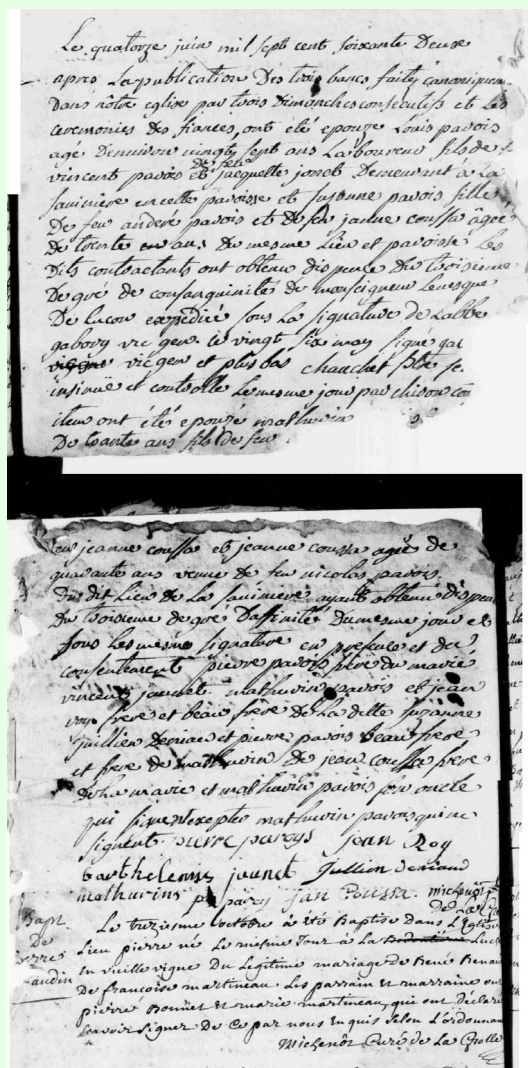 Le quatorze juin mil sept cent soixante Deuse
apres La publication Des trois bancs faits canoniquem
Dans nôtre eglise par trois Dimanches consecutifs et Les
ceremonies des fiancés, ont été epouzé Louis pavois
agé Denviron vingt sept ans Laboureur fils de
vincent pavois et de feue jacquette jonet Demeurant a La
saviniere en cette paroisse et susanne pavois fille
De feu andré pavois et de feu jeanne coussa agée
De trente ans du mesme Lieu et paroisse Les
Dits contractants ont obtenu dispence du troisieme
Degré de consanguinité de monseigneur Levesque
De Lucon expediée sous La signature de Labbé
gabory vic gen. le vingt six may signé ga
vic gen et plus bas chauchet pbtre se.
insinué et controllé Le mesme jour par chison con
item ont étés epouzé mathurin
De trante ans fils de feu
feu jeanne coussa et jeanne coussa agée de
quarante ans veuve de feu nicolas pavois
du dit Lieu de La saviniere ayants obtenu dispen
Du troisieme degré Daffinité Du mesme jour et
sous Les mesme signature en presence et du
consentement pierre pavois frere du marié
vincent jauchet mathurin pavois et jean
roy frere et beau frere de La ditte suzanne
jullien Deriau et pierre pavois beau frere
et frere de mathurin De jean coussa frere
de La mariée et mathurin pavois son oncle
qui signent excepté mathurin pavois qui ne
signent pierre paroys jean Roy
barthelemy jaunet Jullien deriaud
mathurins paroys jan Coussa. michenot
de La G
Bapt.
De
pierre
audin
Le trezisme octobre a été Baptisé dans L'Eglise
Lieu pierre né Le mesme Jour à La
En vieille vigne Du Legitime mariage de René Renau
De francoise martineau Les parrain et marraine ont
pierre Bonnet et marie martineau, qui ont déclaré
scavoir signer De Ce par nous Enquis selon L'ordonnan
Michenot Curé de La Grolle